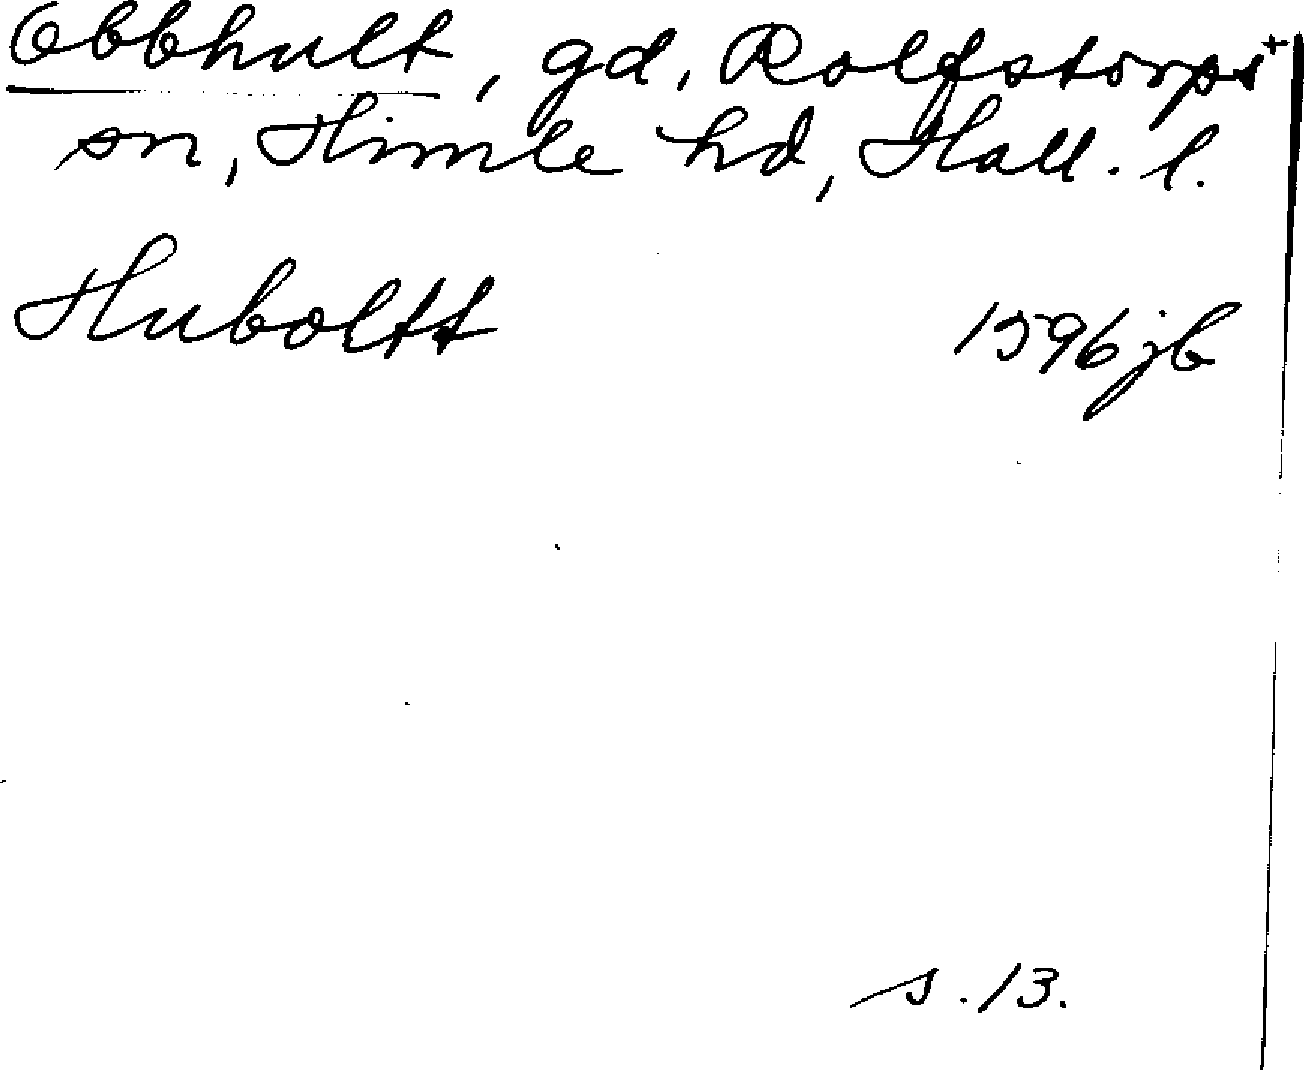 Obbhult, gd, Rolfstorps+
sn, Himle hd, Hall. l.
Huboltt 1596 jb
s. 13.